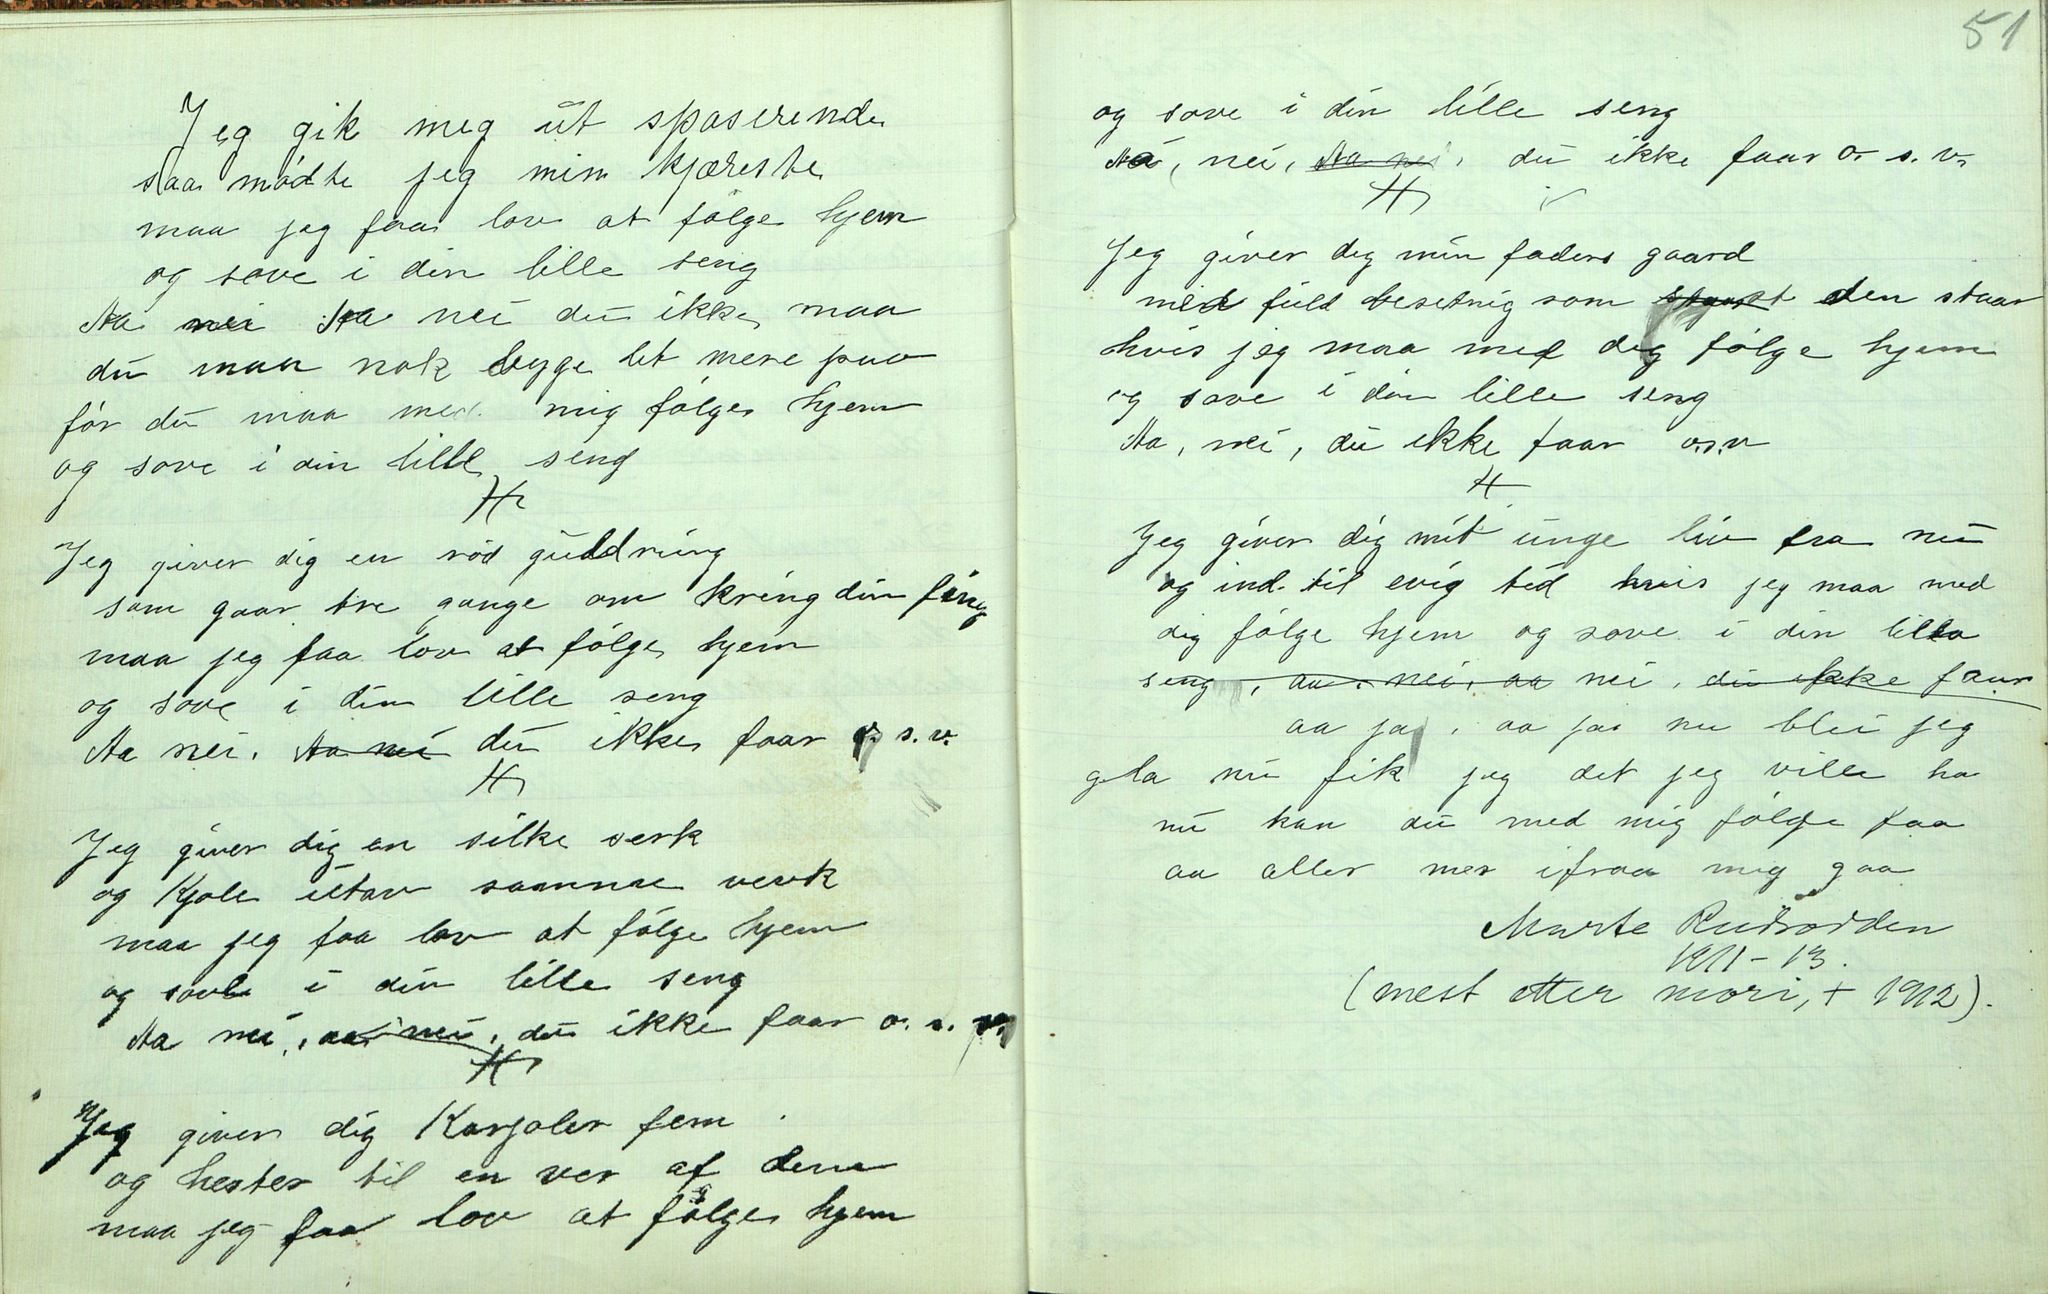 Jeg gik meg ut spaserende
saa mødte jeg min kjæreste
maa jeg faa lov at følge hjem
og sove i din lille seng
Aa nei Aa nei du ikke maa
du maa nok byge let mere paa
før du maa med mig følge hjem
og sove i din lille seng
Jeg giver dig en rød guldring
som gaar tre gange om kring din fing
maa jeg faa lov at følge hjem
og sove i din lille seng
Aa nei, Aa nei du ikke faar o. s. v.
Jeg giver dig en silke serk
og Kjole utav samme verk
maa jeg faa lov at følge hjem
og sove i din lille seng
Aa nei, aa nei, du ikke faar o. s. v.
Jeg giver dig Karjoler fem
og hester til en ver af dem
maa jeg faa lov at følge hjem
51
og sove i din lille seng
Aa, nei, Aa nei, du ikke faar o. s. v.
Jeg giver dig min faders gaard
med fuld besetnig som den staar
hvis jeg maa med dig følge hjem
og sove i din lille seng
Aa, nei, du ikke faar o.s.v
Jeg giver dig mit unge liv fra nu
og ind til evig tid hvis jeg maa med
dig følge hjem og sove i din lilla
seng, aa, nei, aa nei, du ikke faar
aa ja, aa ja nu blei jeg
gla nu fik jeg det jeg ville ha
nu kan du med mig følge faa
aa aller mer ifraa mig gaa
Marte
1911-13.
(mest etter mori, + 1912).